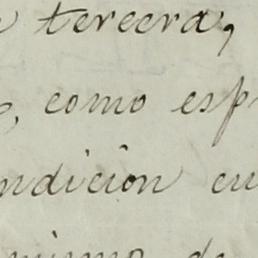 tercera,
, como esp
ndicion cu
mismo de